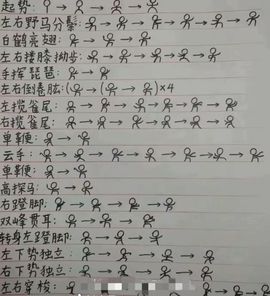 起势:
左右野马分鬃:
白鹤亮翅:
左右搂膝拗步:
手挥琵琶:
左右倒卷肱:( )×4
左揽雀尾:
右揽雀尾:
单鞭:
云手:
单鞭:
高探马:
右蹬脚:
双峰贯耳:
转身左蹬脚:
左下势独立:
右下势独立:
左右穿梭: